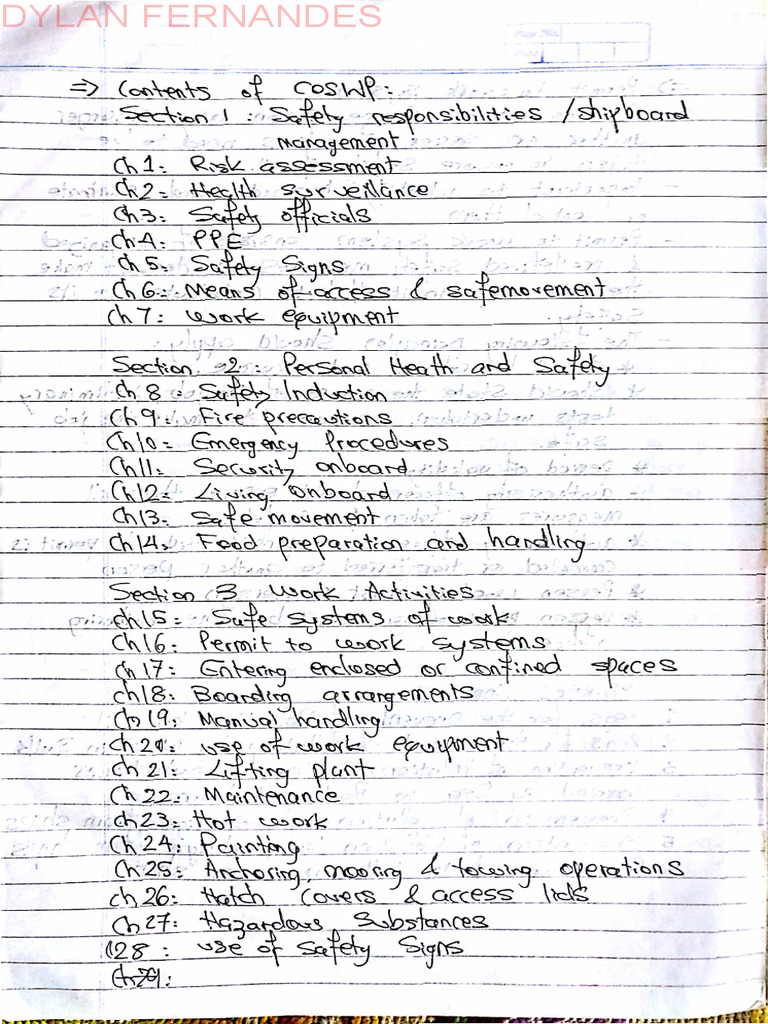 DYLAN FERNANDES
=> Contents of COSWP:
Section 1 : Safety responsibilities / shipboard
management
Ch 1: Risk assessment
Ch2: Health surveillance
Ch3: Safety officials
Ch4: PPE
Ch5: Safety Signs
Ch6: Means of access & safemovement
Ch7: work equipment
Section 2: Personal Heath and Safety
Ch 8: Safety Induction
Ch9: Fire precautions
Ch10: Emergency Procedures
Ch11: Security onboard
Ch12: Living onboard
Ch13: Safe movement
Ch14: Food preparation and handling
Section 3 Work Activities
Ch15: Safe systems of work
Ch16: Permit to work systems
Ch17: Entering enclosed or confined spaces
Ch18: Boarding arrangements
Ch19: Manual handling
Ch20: use of work equipment
Ch 21: Lifting plant
Ch22: Maintenance
Ch23: Hot work
Ch24: Painting
Ch25: Anchoring, mooring & towing operations
Ch26: Hatch Covers & access lids
Ch27: Hazardous Substances
28: use of Safety Signs